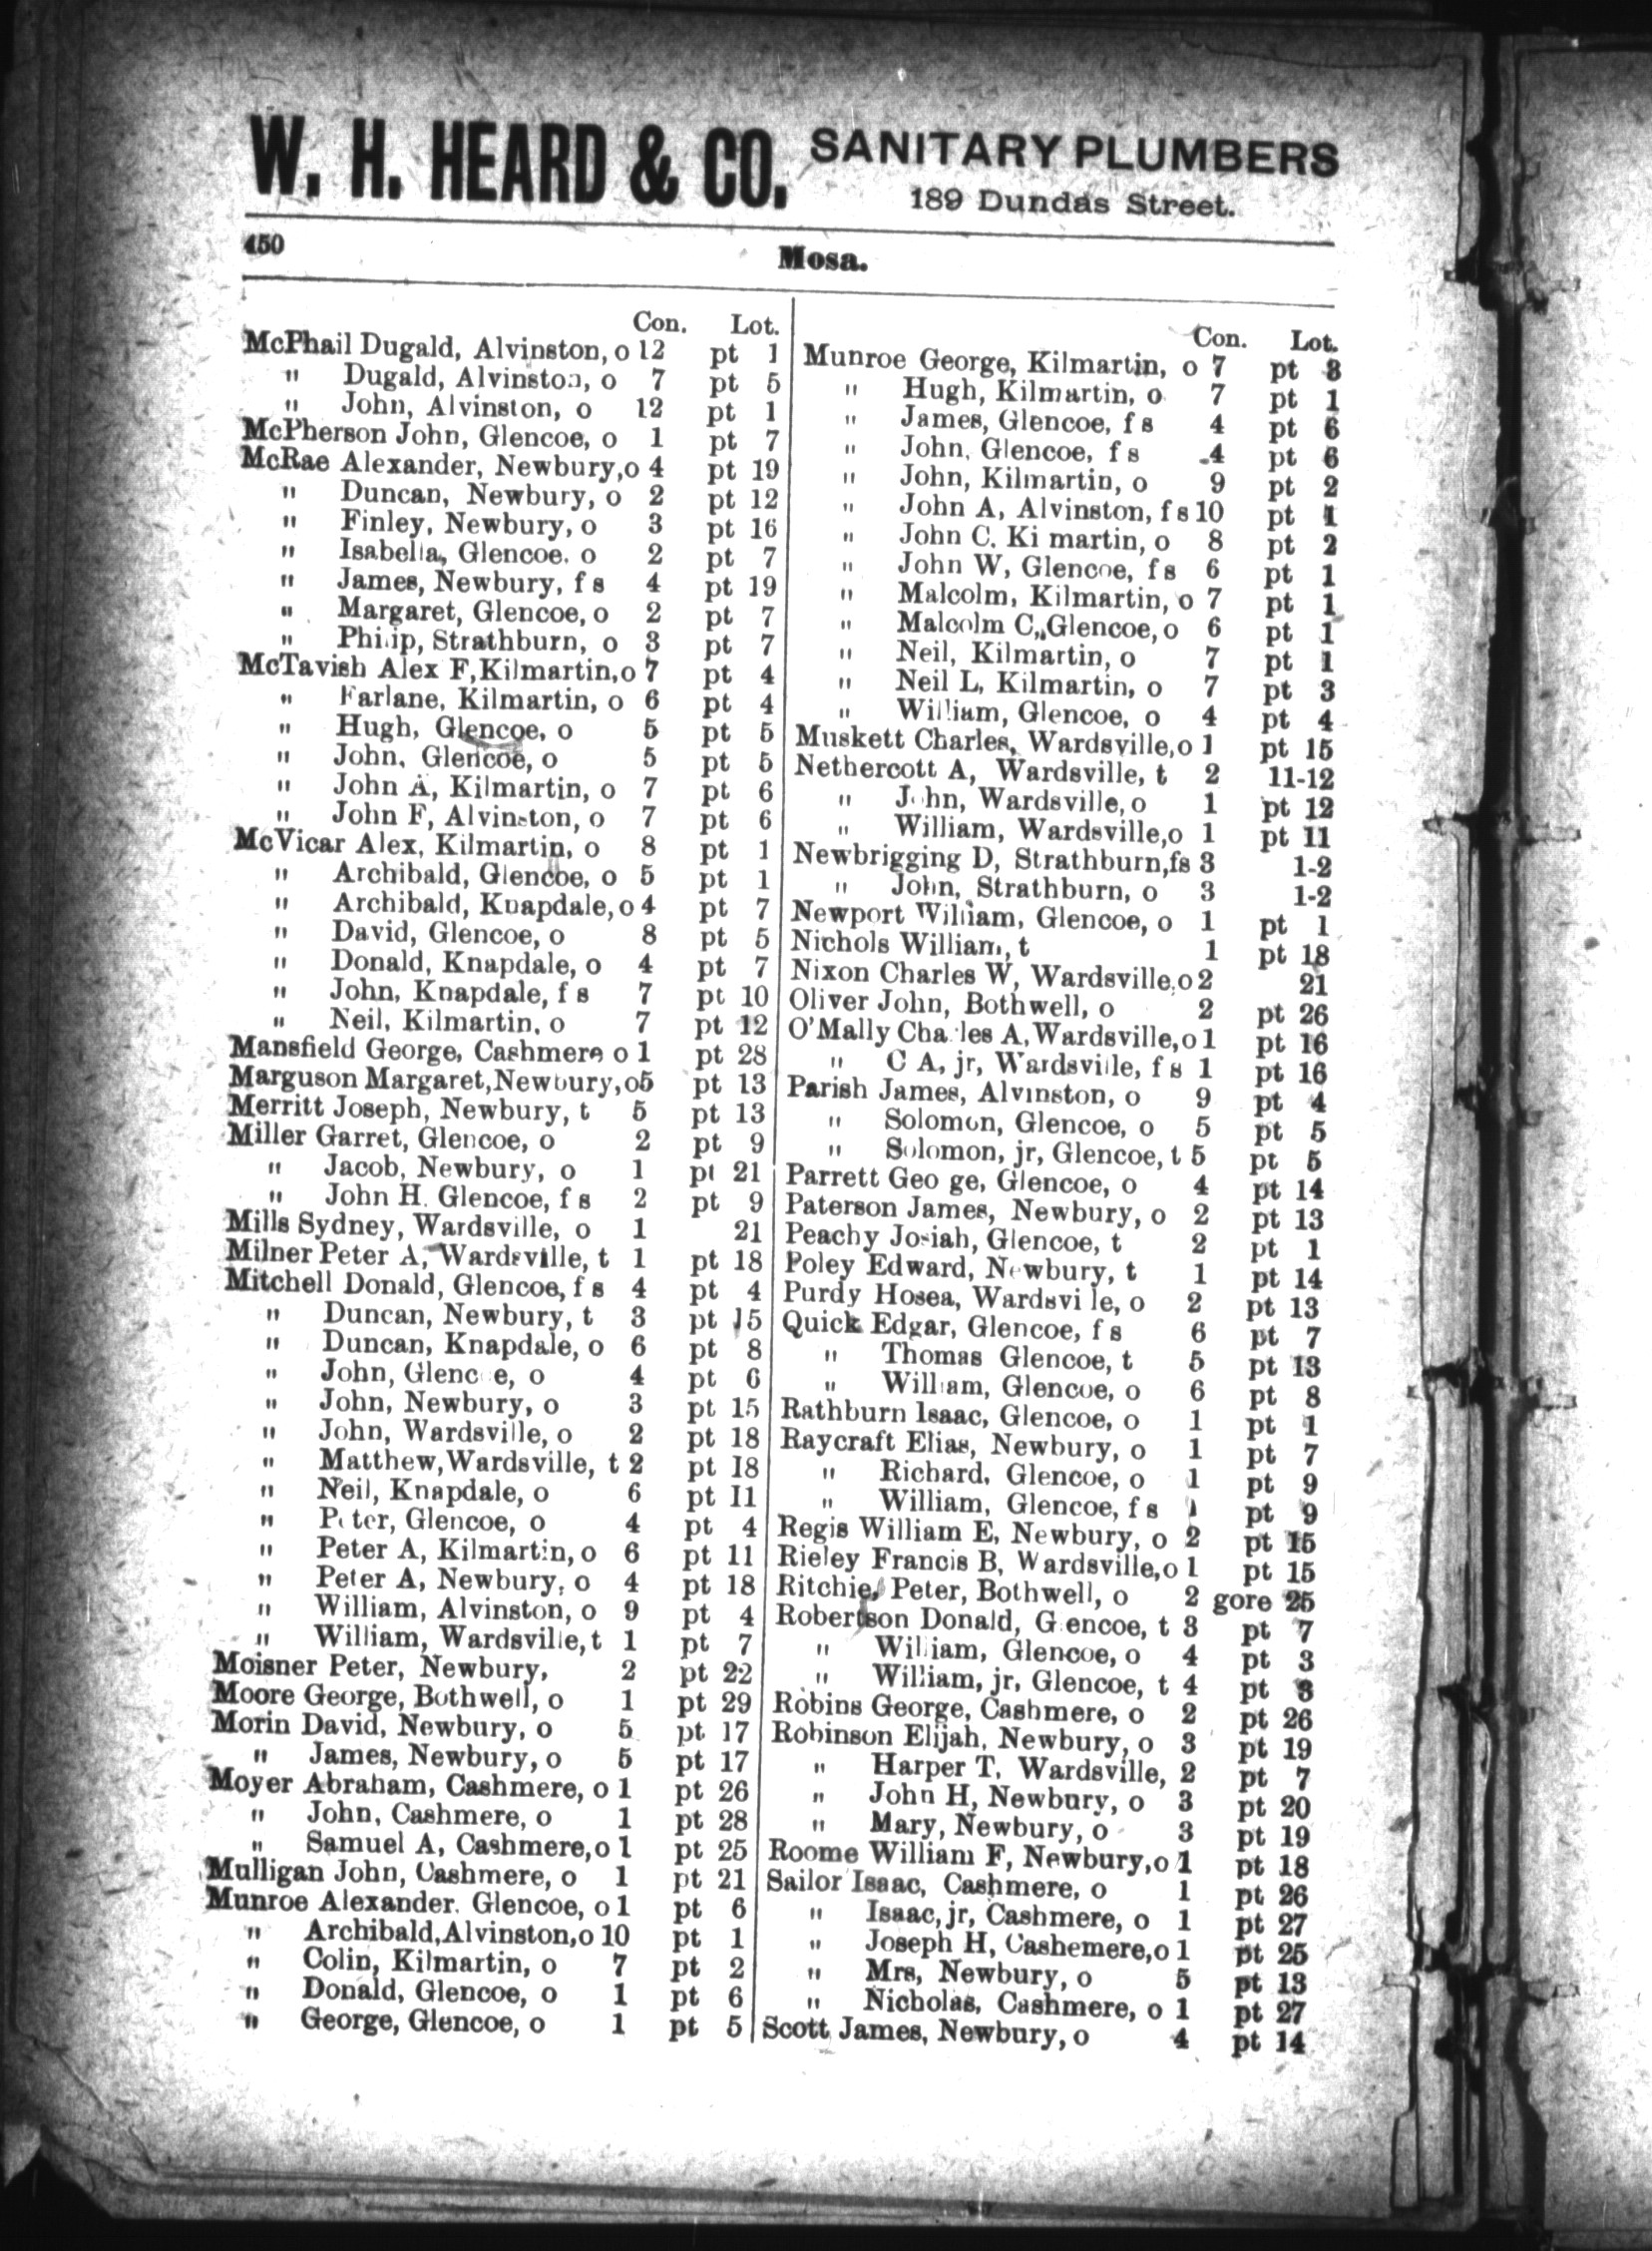 W. H. HEARD & CO. SANITARY PLUMBERS
189 Dundas Street.
450
Mosa.
Con. Lot.
McPhail Dugald, Alvinston, o 12 pt 1
" Dugald, Alvinston, o 7 pt 5
" John, Alvinston, o 12 pt 1
McPherson John, Glencoe, o 1 pt 7
McRae Alexander, Newbury, o 4 pt 19
" Duncan, Newbury, o 2 pt 12
" Finley, Newbury, o 3 pt 16
" Isabella, Glencoe. o 2 pt 7
" James, Newbury, f s 4 pt 19
" Margaret, Glencoe, o 2 pt 7
" Philip, Strathburn, o 3 pt 7
McTavish Alex F, Kilmartin, o 7 pt 4
" Farlane, Kilmartin, o 6 pt 4
" Hugh, Glencoe, o 5 pt 5
" John, Glencoe, o 5 pt 5
" John A, Kilmartin, o 7 pt 6
" John F, Alvinston, o 7 pt 6
McVicar Alex, Kilmartin, o 8 pt 1
" Archibald, Glencoe, o 5 pt 1
" Archibald, Knapdale, o 4 pt 7
" David, Glencoe, o 8 pt 5
" Donald, Knapdale, o 4 pt 7
" John, Knapdale, f s 7 pt 10
" Neil, Kilmartin, o 7 pt 12
Mansfield George, Cashmere o 1 pt 28
Marguson Margaret, Newbury, o 5 pt 13
Merritt Joseph, Newbury, t 5 pt 13
Miller Garret, Glencoe, o 2 pt 9
" Jacob, Newbury, o 1 pt 21
" John H. Glencoe, f s 2 pt 9
Mills Sydney, Wardsville, o 1 21
Milner Peter A, Wardsville, t 1 pt 18
Mitchell Donald, Glencoe, f s 4 pt 4
" Duncan, Newbury, t 3 pt 15
" Duncan, Knapdale, o 6 pt 8
" John, Glenc e, o 4 pt 6
" John, Newbury, o 3 pt 15
" John, Wardsville, o 2 pt 18
" Matthew, Wardsville, t 2 pt 18
" Neil, Knapdale, o 6 pt 11
" Peter, Glencoe, o 4 pt 4
" Peter A, Kilmartin, o 6 pt 11
" Peter A, Newbury, o 4 pt 18
" William, Alvinston, o 9 pt 4
" William, Wardsville, t 1 pt 7
Moisner Peter, Newbury, 2 pt 22
Moore George, Bothwell, o 1 pt 29
Morin David, Newbury, o 5 pt 17
" James, Newbury, o 5 pt 17
Moyer Abraham, Cashmere, o 1 pt 26
" John, Cashmere, o 1 pt 28
" Samuel A, Cashmere, o 1 pt 25
Mulligan John, Cashmere, o 1 pt 21
Munroe Alexander. Glencoe, o 1 pt 6
" Archibald, Alvinston, o 10 pt 1
" Colin, Kilmartin, o 7 pt 2
" Donald, Glencoe, o 1 pt 6
" George, Glencoe, o 1 pt 5
Con. Lot.
Munroe George, Kilmartin, o 7 pt 3
" Hugh, Kilmartin, o 7 pt 1
" James, Glencoe, f s 4 pt 6
" John, Glencoe, f s 4 pt 6
" John, Kilmartin, o 9 pt 2
" John A, Alvinston, f s 10 pt 1
" John C. Ki martin, o 8 pt 2
" John W, Glencoe, f s 6 pt 1
" Malcolm, Kilmartin, o 7 pt 1
" Malcolm C, Glencoe, o 6 pt 1
" Neil, Kilmartin, o 7 pt 1
" Neil L, Kilmartin, o 7 pt 3
" William, Glencoe, o 4 pt 4
Muskett Charles, Wardsville, o 1 pt 15
Nethercott A, Wardsville, t 2 11-12
" John, Wardsville, o 1 pt 12
" William, Wardsville, o 1 pt 11
Newbrigging D, Strathburn, fs 3 1-2
" John, Strathburn, o 3 1-2
Newport William, Glencoe, o 1 pt 1
Nichols William, t 1 pt 18
Nixon Charles W, Wardsville, o 2 21
Oliver John, Bothwell, o 2 pt 26
O'Mally Cha les A, Wardsville, o 1 pt 16
" C A, jr, Wardsville, f s 1 pt 16
Parish James, Alvinston, o 9 pt 4
" Solomon, Glencoe, o 5 pt 5
" Solomon, jr, Glencoe, t 5 pt 5
Parrett Geo ge, Glencoe, o 4 pt 14
Paterson James, Newbury, o 2 pt 13
Peachy Josiah, Glencoe, t 2 pt 1
Poley Edward, Newbury, t 1 pt 14
Purdy Hosea, Wardsvi le, o 2 pt 13
Quick Edgar, Glencoe, f s 6 pt 7
" Thomas Glencoe, t 5 pt 13
" William, Glencoe, o 6 pt 8
Rathburn Isaac, Glencoe, o 1 pt 1
Raycraft Elias, Newbury, o 1 pt 7
" Richard, Glencoe, o 1 pt 9
" William, Glencoe, f s 1 pt 9
Regis William E, Newbury, o 2 pt 15
Rieley Francis B, Wardsville, o 1 pt 15
Ritchie, Peter, Bothwell, o 2 gore 25
Robertson Donald, G encoe, t 3 pt 7
" William, Glencoe, o 4 pt 3
" William, jr, Glencoe, t 4 pt 3
Robins George, Cashmere, o 2 pt 26
Robinson Elijah, Newbury, o 3 pt 19
" Harper T, Wardsville, 2 pt 7
" John H, Newbury, o 3 pt 20
" Mary, Newbury, o 3 pt 19
Roome William F, Newbury, o 1 pt 18
Sailor Isaac, Cashmere, o 1 pt 26
" Isaac, jr, Cashmere, o 1 pt 27
" Joseph H, Cashemere, o 1 pt 25
" Mrs, Newbury, o 5 pt 13
" Nicholas, Cashmere, o 1 pt 27
Scott James, Newbury, o 4 pt 14